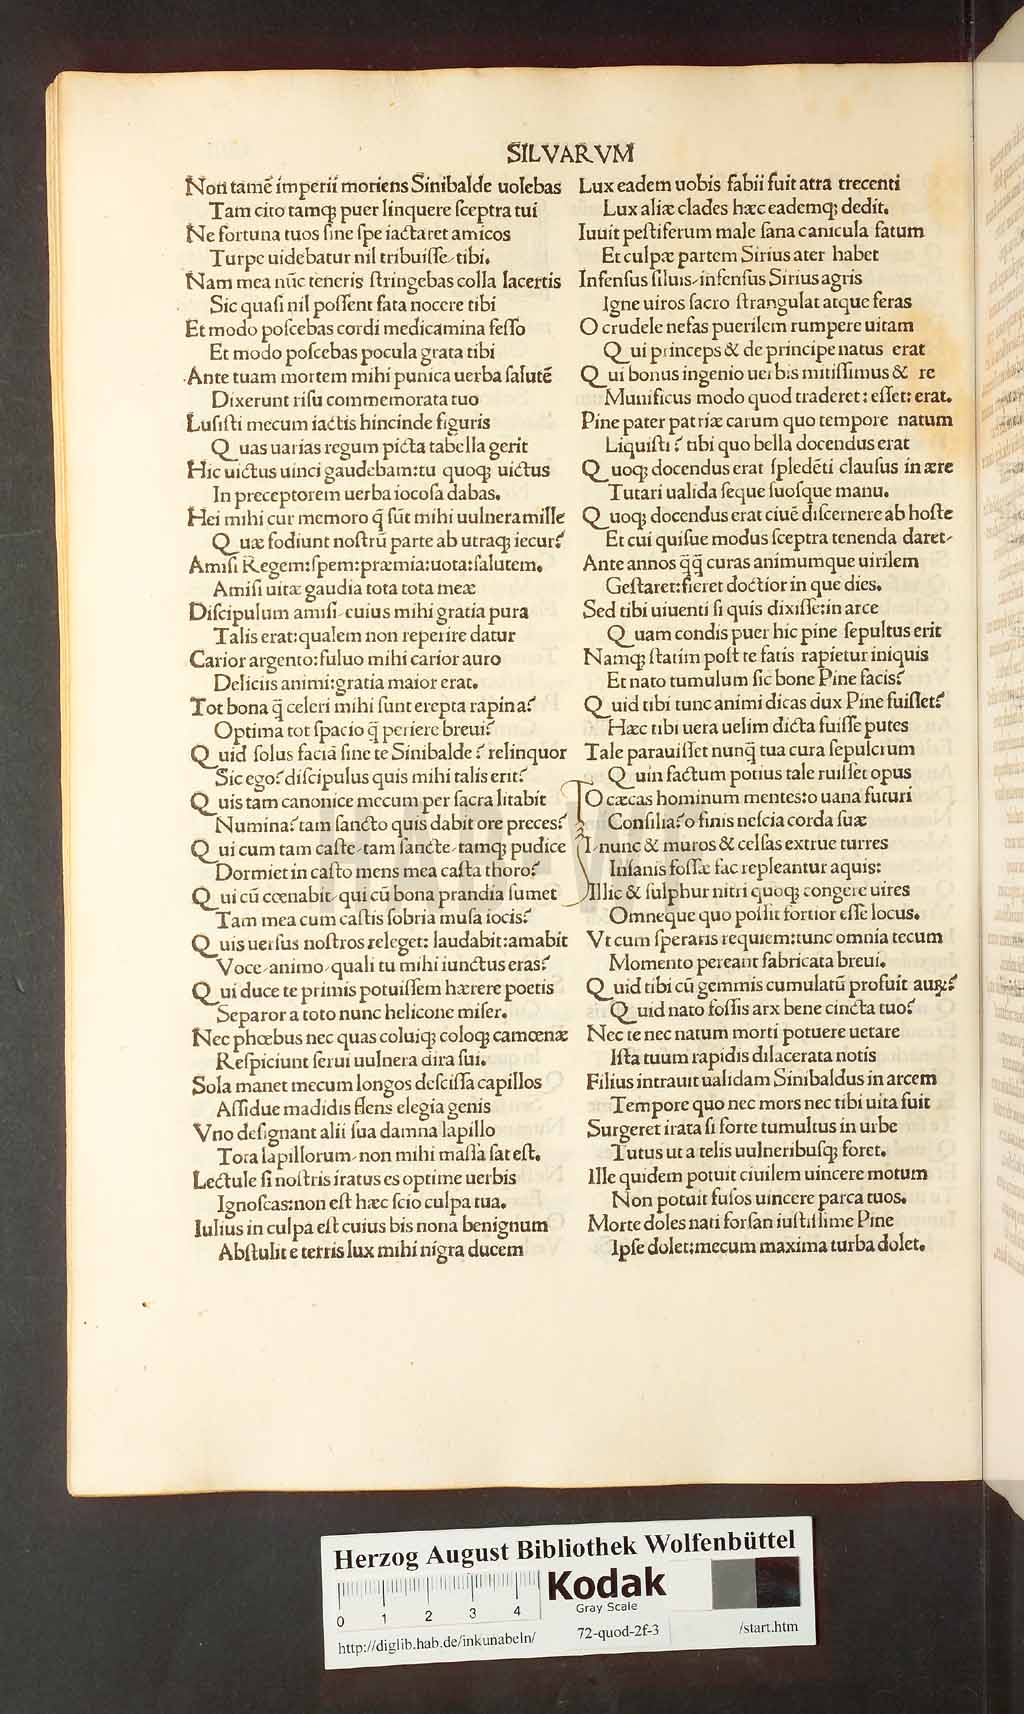 SILVARVM
Non tamē imperii moriens Sinibalde uolebas
Tam cito tamq; puer linquere ſceptra tui
Ne fortuna tuos ſine ſpe iactaret amicos
Turpe uidebatur nil tribuiſſe tibi.
Nam mea nūc teneris ſtringebas colla lacertis
Sic quaſi nil poſſent fata nocere tibi
Et modo poſcebas cordi medicamina feſſo
Et modo poſcebas pocula grata tibi
Ante tuam mortem mihi punica uerba ſalutē
Dixerunt riſu commemorata tuo
Luſiſti mecum iactis hincinde figuris
Quas uarias regum picta tabella gerit
Hic uictus uinci gaudebam:tu quoq; uictus
In preceptorem uerba iocoſa dabas.
Hei mihi cur memoro q̄ ſūt mihi uulnera mille
Quæ fodiunt noſtrū parte ab utraq; iecur?
Amiſi Regem:ſpem:præmia:uota:ſalutem.
Amiſi uitæ gaudia tota tota meæ
Diſcipulum amiſi cuius mihi gratia pura
Talis erat:qualem non reperire datur
Carior argento:fuluo mihi carior auro
Deliciis animi:gratia maior erat.
Tot bona q̄ celeri mihi ſunt erepta rapina?
Optima tot ſpacio q̄ periere breui?
Quid ſolus faciā ſine te Sinibalde? relinquor
Sic ego? diſcipulus quis mihi talis erit?
Quis tam canonice mecum per ſacra litabit
Numina? tam ſancto quis dabit ore preces?
Qui cum tam caſte tam ſancte tamq; pudice
Dormiet in caſto mens mea caſta thoro?
Qui cū cœnabit qui cū bona prandia ſumet
Tam mea cum caſtis ſobria muſa iocis?
Quis uerſus noſtros releget: laudabit:amabit
Voce animo quali tu mihi iunctus eras?
Qui duce te primis potuiſſem hærere poetis
Separor a toto nunc helicone miſer.
Nec phœbus nec quas coluiq; coloq; camœnæ
Reſpiciunt ſerui uulnera dira ſui.
Sola manet mecum longos deſciſſa capillos
Aſſidue madidis flens elegia genis
Vno deſignant alii ſua damna lapillo
Tota lapillorum non mihi maſſa ſat eſt.
Lectule ſi noſtris iratus es optime uerbis
Ignoſcas:non eſt hæc ſcio culpa tua.
Iulius in culpa eſt cuius bis nona benignum
Abſtulit e terris lux mihi nigra ducem
Lux eadem uobis fabii fuit atra trecenti
Lux aliæ clades hæc eademq; dedit.
Iuuit peſtiferum male ſana canicula fatum
Et culpæ partem Sirius ater habet
Infenſus ſiluis infenſus Sirius agris
Igne uiros ſacro ſtrangulat atque feras
O crudele nefas puerilem rumpere uitam
Qui princeps & de principe natus erat
Qui bonus ingenio uerbis mitiſſimus & re
Munificus modo quod traderet: eſſet: erat.
Pine pater patriæ carum quo tempore natum
Liquiſti? tibi quo bella docendus erat
Quoq; docendus erat ſplēdēti clauſus in ære
Tutari ualida ſeque ſuoſque manu.
Quoq; docendus erat ciuē diſcernere ab hoſte
Et cui quiſue modus ſceptra tenenda daret
Ante annos q̄q̄ curas animumque uirilem
Geſtaret:fieret doctior in que dies.
Sed tibi uiuenti ſi quis dixiſſe:in arce
Quam condis puer hic pine ſepultus erit
Namq; ſtatim poſt te fatis rapietur iniquis
Et nato tumulum ſic bone Pine facis?
Quid tibi tunc animi dicas dux Pine fuiſſet?
Hæc tibi uera uelim dicta fuiſſe putes
Tale parauiſſet nunq̄ tua cura ſepulcrum
Quin factum potius tale ruiſſet opus
O cæcas hominum mentes:o uana futuri
Conſilia? o finis neſcia corda ſuæ
I nunc & muros & celſas extrue turres
Inſanis foſſæ fac repleantur aquis:
Illic & ſulphur nitri quoq; congere uires
Omneque quo poſſit fortior eſſe locus.
Vt cum ſperaris requiem:tunc omnia tecum
Momento pereant fabricata breui.
Quid tibi cū gemmis cumulatū profuit auꝝ?
Quid nato foſſis arx bene cincta tuo?
Nec te nec natum morti potuere uetare
Iſta tuum rapidis dilacerata notis
Filius intrauit ualidam Sinibaldus in arcem
Tempore quo nec mors nec tibi uita fuit
Surgeret irata ſi forte tumultus in urbe
Tutus ut a telis uulneribuſq; foret.
Ille quidem potuit ciuilem uincere motum
Non potuit fuſos uincere parca tuos.
Morte doles nati forſan iuſtiſſime Pine
Ipſe dolet:mecum maxima turba dolet.
Herzog August Bibliothek Wolfenbüttel
Kodak
Gray Scale
0 1 2 3 4
http://diglib.hab.de/inkunabeln/ 72-quod-2f-3 /start.htm